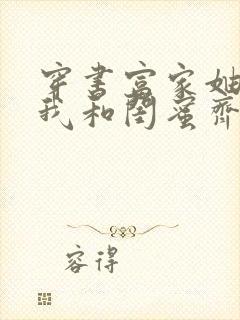 穿书富家妯
我和闺蜜齐
容得